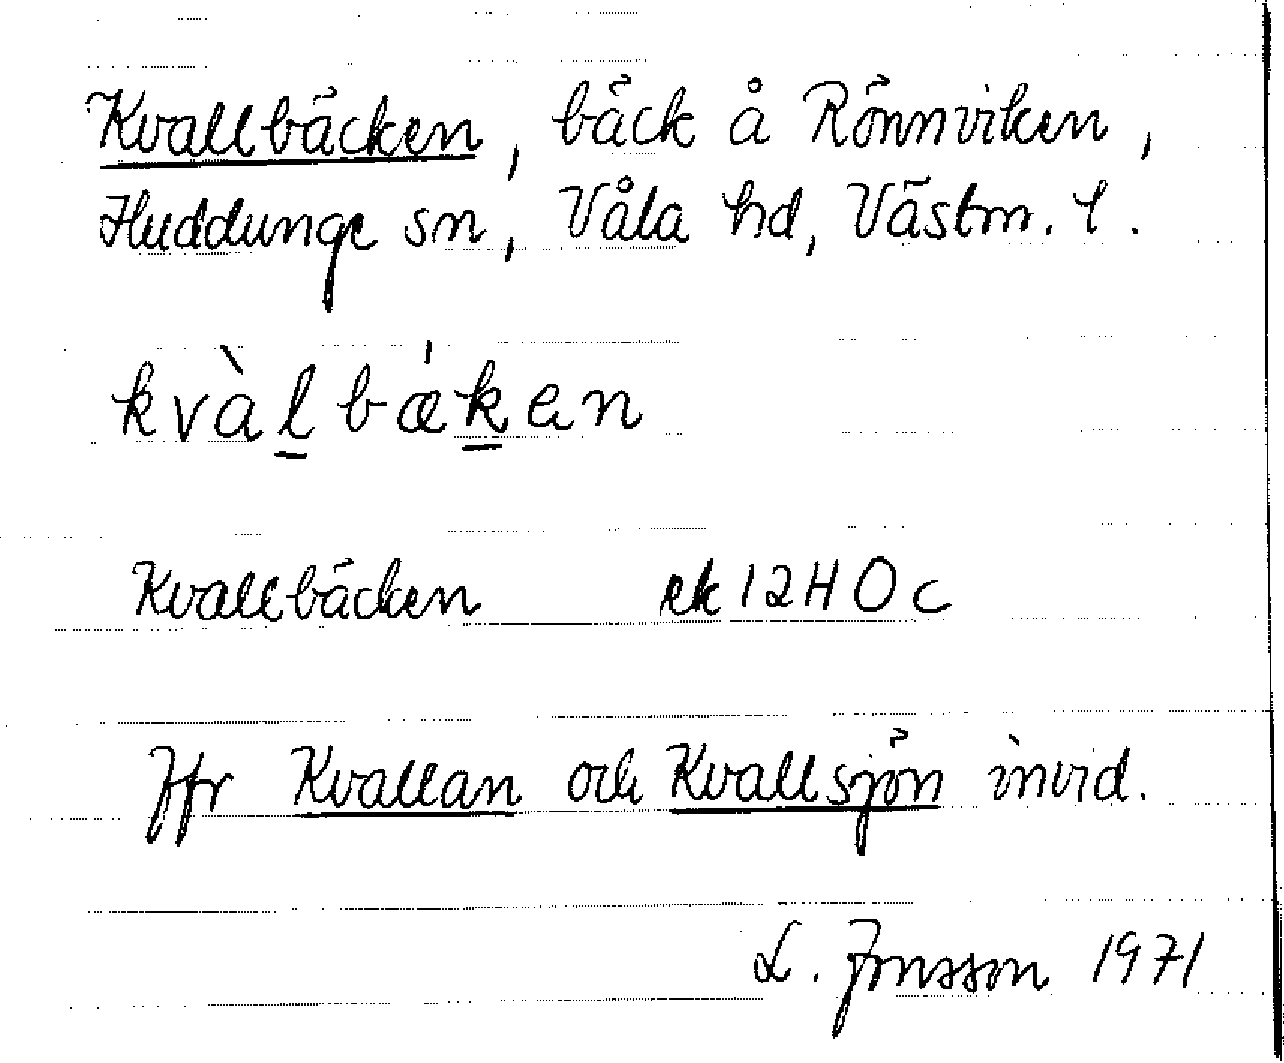 Kvallbäcken, bäck å Rönnviken,
Huddunge sn, Våla hd, Västm. l.
kvàl̠bák̠en
Kvallbäcken ek 12H0c
Jfr Kvallan och Kvallsjön invid.
L. Jonsson 1971